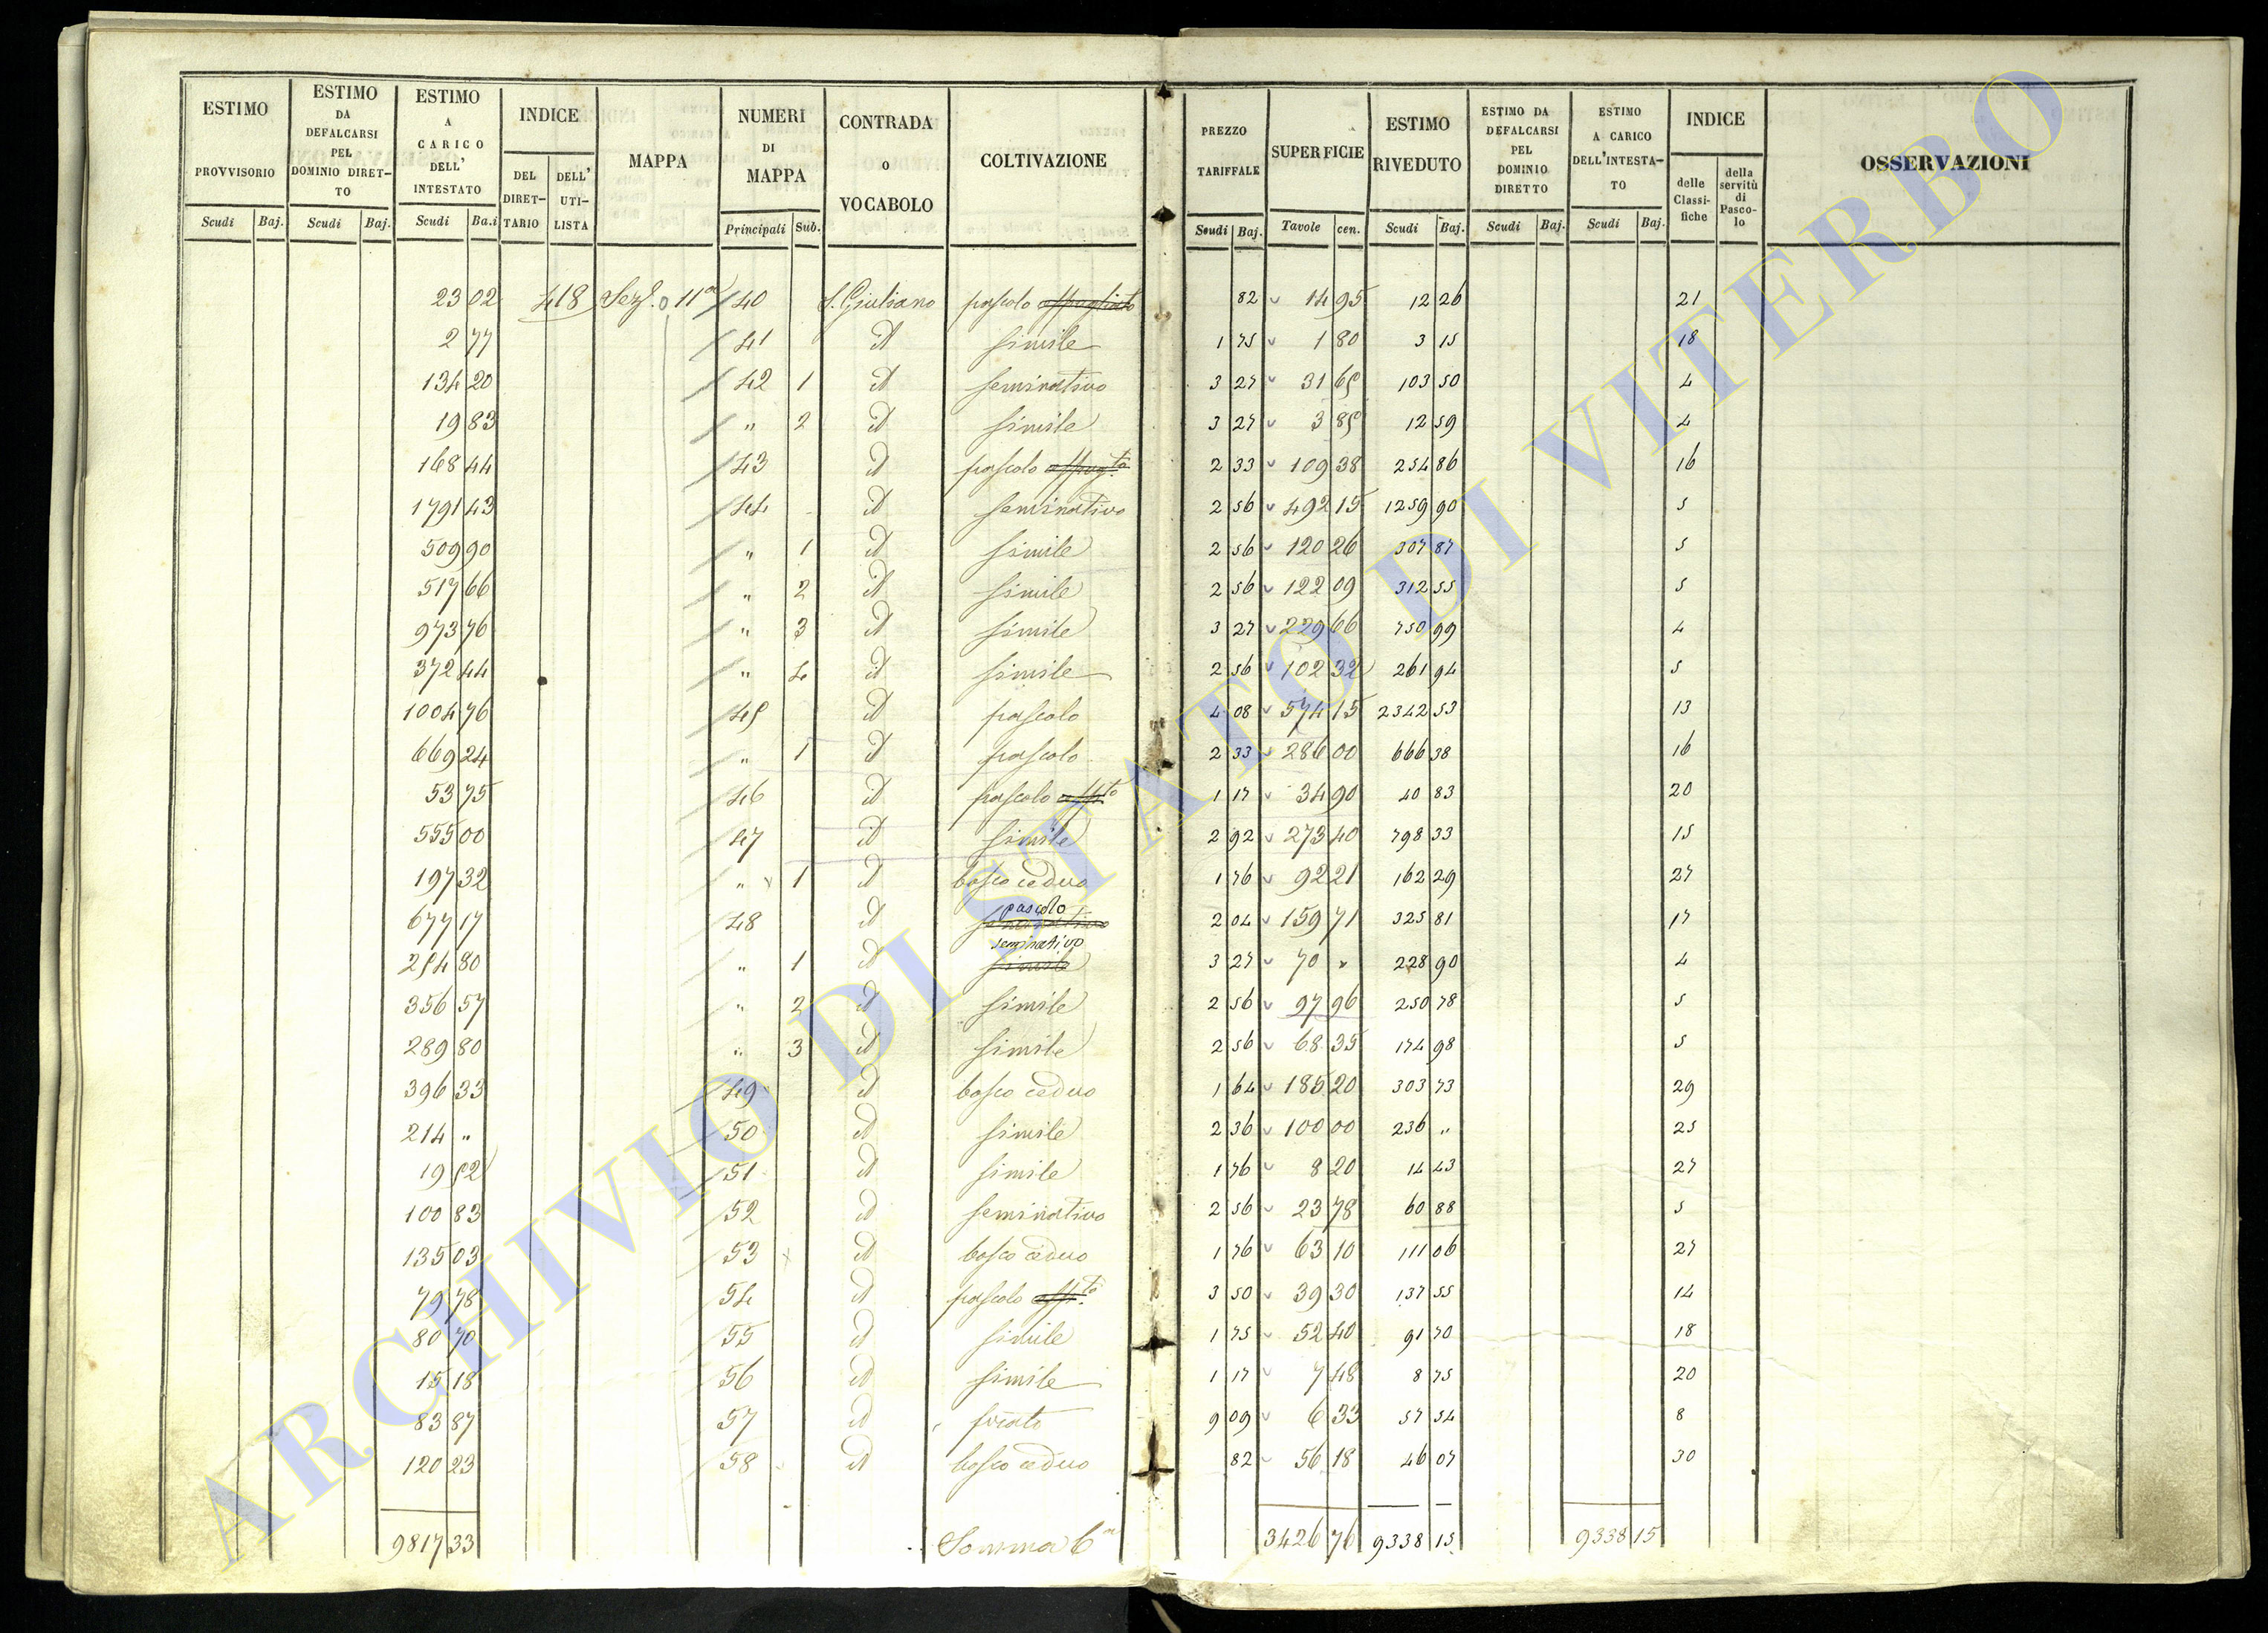 ESTIMO PROVVISORIO Scudi Baj.
ESTIMO DA DEFALCARSI PEL DOMINIO DIRETTO Scudi Baj.
ESTIMO A CARICO DELL' INTESTATO Scudi Ba.i
INDICE DEL DIRETTARIO DELL' UTILISTA
MAPPA
NUMERI DI MAPPA Principali Sub.
CONTRADA o VOCABOLO
COLTIVAZIONE
PREZZO TARIFFALE Scudi Baj.
SUPERFICIE Tavole cen.
ESTIMO RIVEDUTO Scudi Baj.
ESTIMO DA DEFALCARSI PEL DOMINIO DIRETTO Scudi Baj.
ESTIMO A CARICO DELL'INTESTATO Scudi Baj.
INDICE delle Classifiche della servitù di Pascolo
OSSERVAZIONI
23 02 418 Sez.e 11a 40 S. Giuliano pascolo 82 14 95 12 26 21
2 77 41 id simile 1 75 1 80 3 15 18
134 20 42 1 id seminativo 3 27 31 65 103 50 4
19 83 " 2 id simile 3 27 3 85 12 59 4
168 44 43 id pascolo 2 33 109 38 254 86 16
1791 43 44 id seminativo 2 56 492 15 1259 90 5
509 90 " 1 id simile 2 56 120 26 307 87 5
517 66 " 2 id simile 2 56 122 09 312 55 5
973 76 " 3 id simile 3 27 229 66 750 99 4
372 44 " 4 id simile 2 56 102 32 261 94 5
1004 76 45 id pascolo 4 08 574 15 2342 53 13
669 24 " 1 id pascolo 2 33 286 00 666 38 16
53 75 46 id pascolo 1 17 34 90 40 83 20
555 00 47 id simile 2 92 273 40 798 33 15
197 32 " 1 id bosco ceduo 1 76 92 21 162 29 27
677 17 48 id pascolo 2 04 159 71 325 81 17
254 80 " 1 id seminativo 3 27 70 " 228 90 4
356 57 " 2 id simile 2 56 97 96 250 78 5
289 80 " 3 id simile 2 56 68 35 174 98 5
396 33 49 id bosco ceduo 1 64 185 20 303 73 29
214 " 50 id simile 2 36 100 00 236 " 25
19 52 51 id simile 1 76 8 20 14 43 27
100 83 52 id seminativo 2 56 23 78 60 88 5
135 03 53 id bosco ceduo 1 76 63 10 111 06 27
79 78 54 id pascolo 3 50 39 30 137 55 14
80 70 55 id simile 1 75 52 40 91 70 18
15 18 56 id simile 1 17 7 48 8 75 20
83 87 57 id prato 9 09 6 33 57 54 8
120 23 58 id bosco ceduo 82 56 18 46 07 30
9817 33 Somma 6a 3426 76 9338 15 9338 15
ARCHIVIO DI STATO DI VITERBO